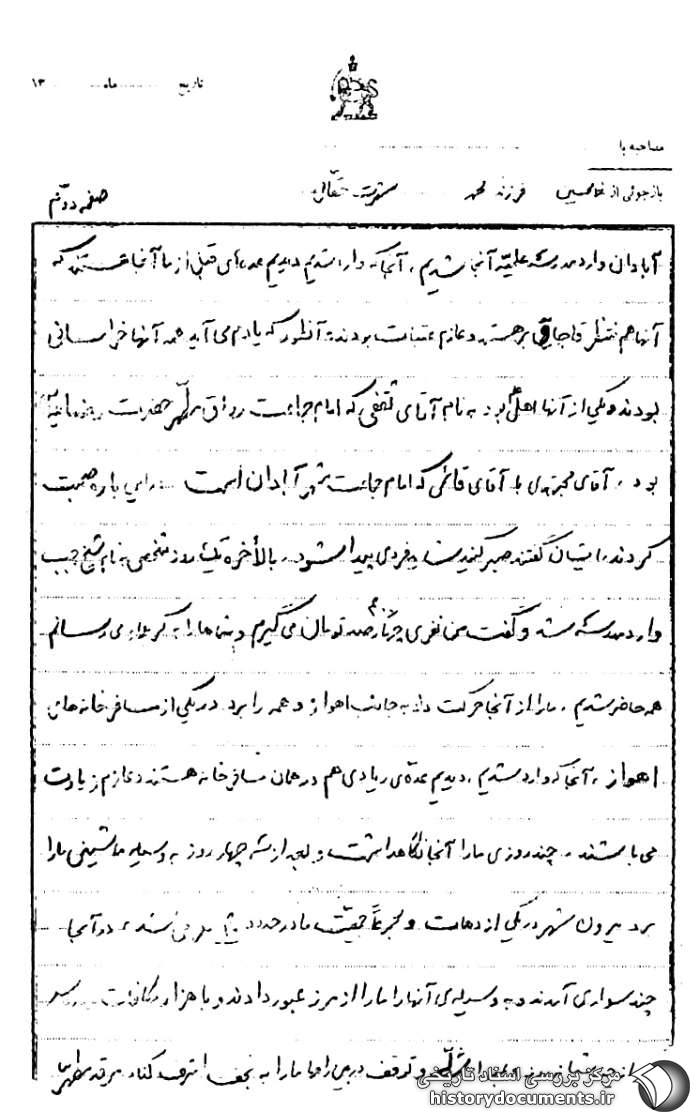 تاریخ ............ ماه ............ ۱۳
مصاحبه با
بازجوئی از غلامحسین فرزند محمد شهرت حقانی
صفحه دوم
آبادان وارد مدرسه علمیّه آنجا شدیم، آنجا که وارد شدیم دیدیم عده‌ای قبلی از ما آنجا هستند که
آنها هم منتظر قاچاقچی هستند و عازم عتبات بودند، آنطور که یادم می‌آید همه آنها خراسانی
بودند و یکی از آنها اهل بود به نام آقای ثقفی که امام جماعت رواق مطهّر حضرت رضا علیه
بود، آقای مجتهدی با آقای قائمی که امام جماعت شهر آبادان است در این باره صحبت
کردند ایشان گفتند صبر کنید فردی پیدا شود، بالأخره یک روز شخصی به نام شیخ حبیب
وارد مدرسه شد و گفت من نفری چهارصد تومان می‌گیرم و شماها را به کربلا می‌رسانم
همه حاضر شدیم، ما را از آنجا حرکت داد به جانب اهواز و همه را برد در یکی از مسافرخانه‌های
اهواز، آنجا که وارد شدیم، دیدیم عدّه‌ی زیادی هم در همان مسافرخانه هستند و عازم زیارت
می‌باشند، چند روزی ما را آنجا نگاهداشت و بعد از سه چهار روز به وسیله ماشینی ما را
برد بیرون شهر در یکی از دهات و مجموعاً جمعیّت ما در حدود می‌شدند، در آنجا
چند سواری آمدند و به وسیله‌ی آنها ما را از مرز عبور دادند و با هزار مکافات
از و توقف در بین راهها ما را به نجف اشرف کنار مرقد مطهر
مرکز بررسی اسناد تاریخی
historydocuments.ir